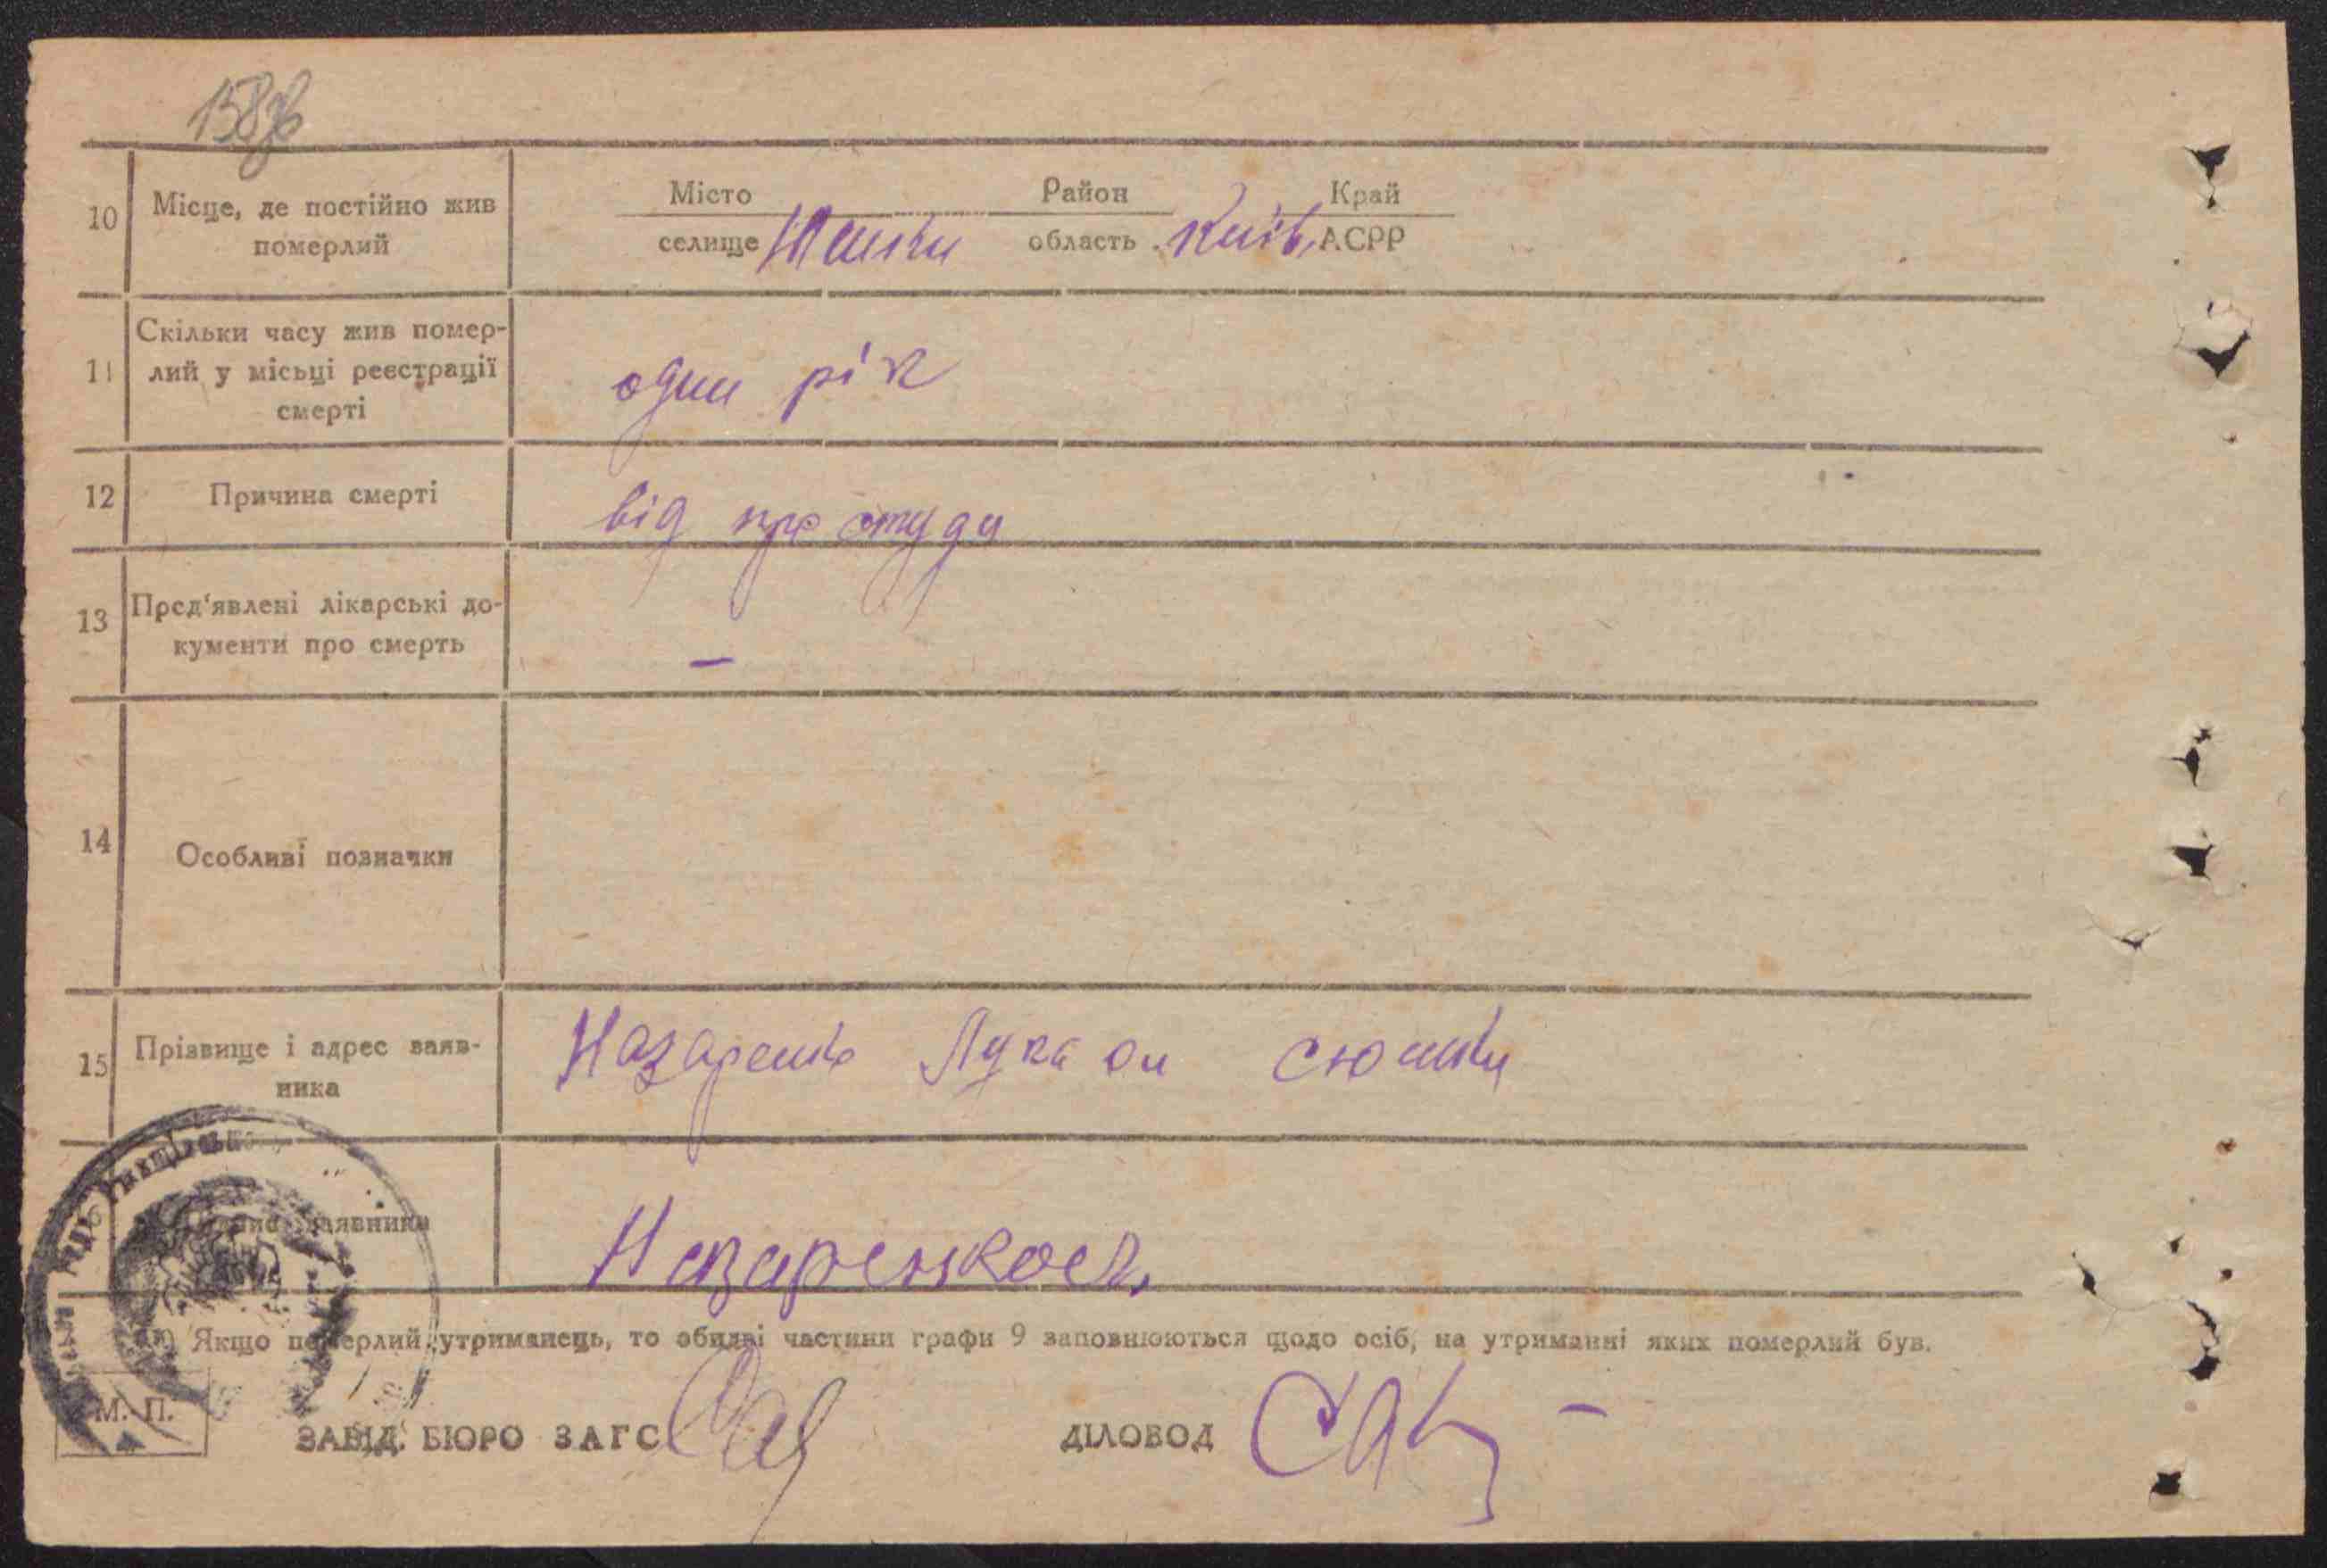 10 Місце, де постійно жив
померлий
Місто Район Край
селище область Київ. АСРР
11 Скільки часу жив помер-
лий у місьці реєстрації
смерті
один рік
12 Причина смерті
від простуди
13 Пред'явлені лікарські до-
кументи про смерть
–
14 Особливі позначки
15 Прізвище і адрес заяв-
ника
Назаренко Лука
заявника
Якщо померлий утриманець, то обидві частини графи 9 заповнюються щодо осіб, на утриманні яких померлий був.
М. П.
ЗАВІД. БЮРО ЗАГС ДІЛОВОД